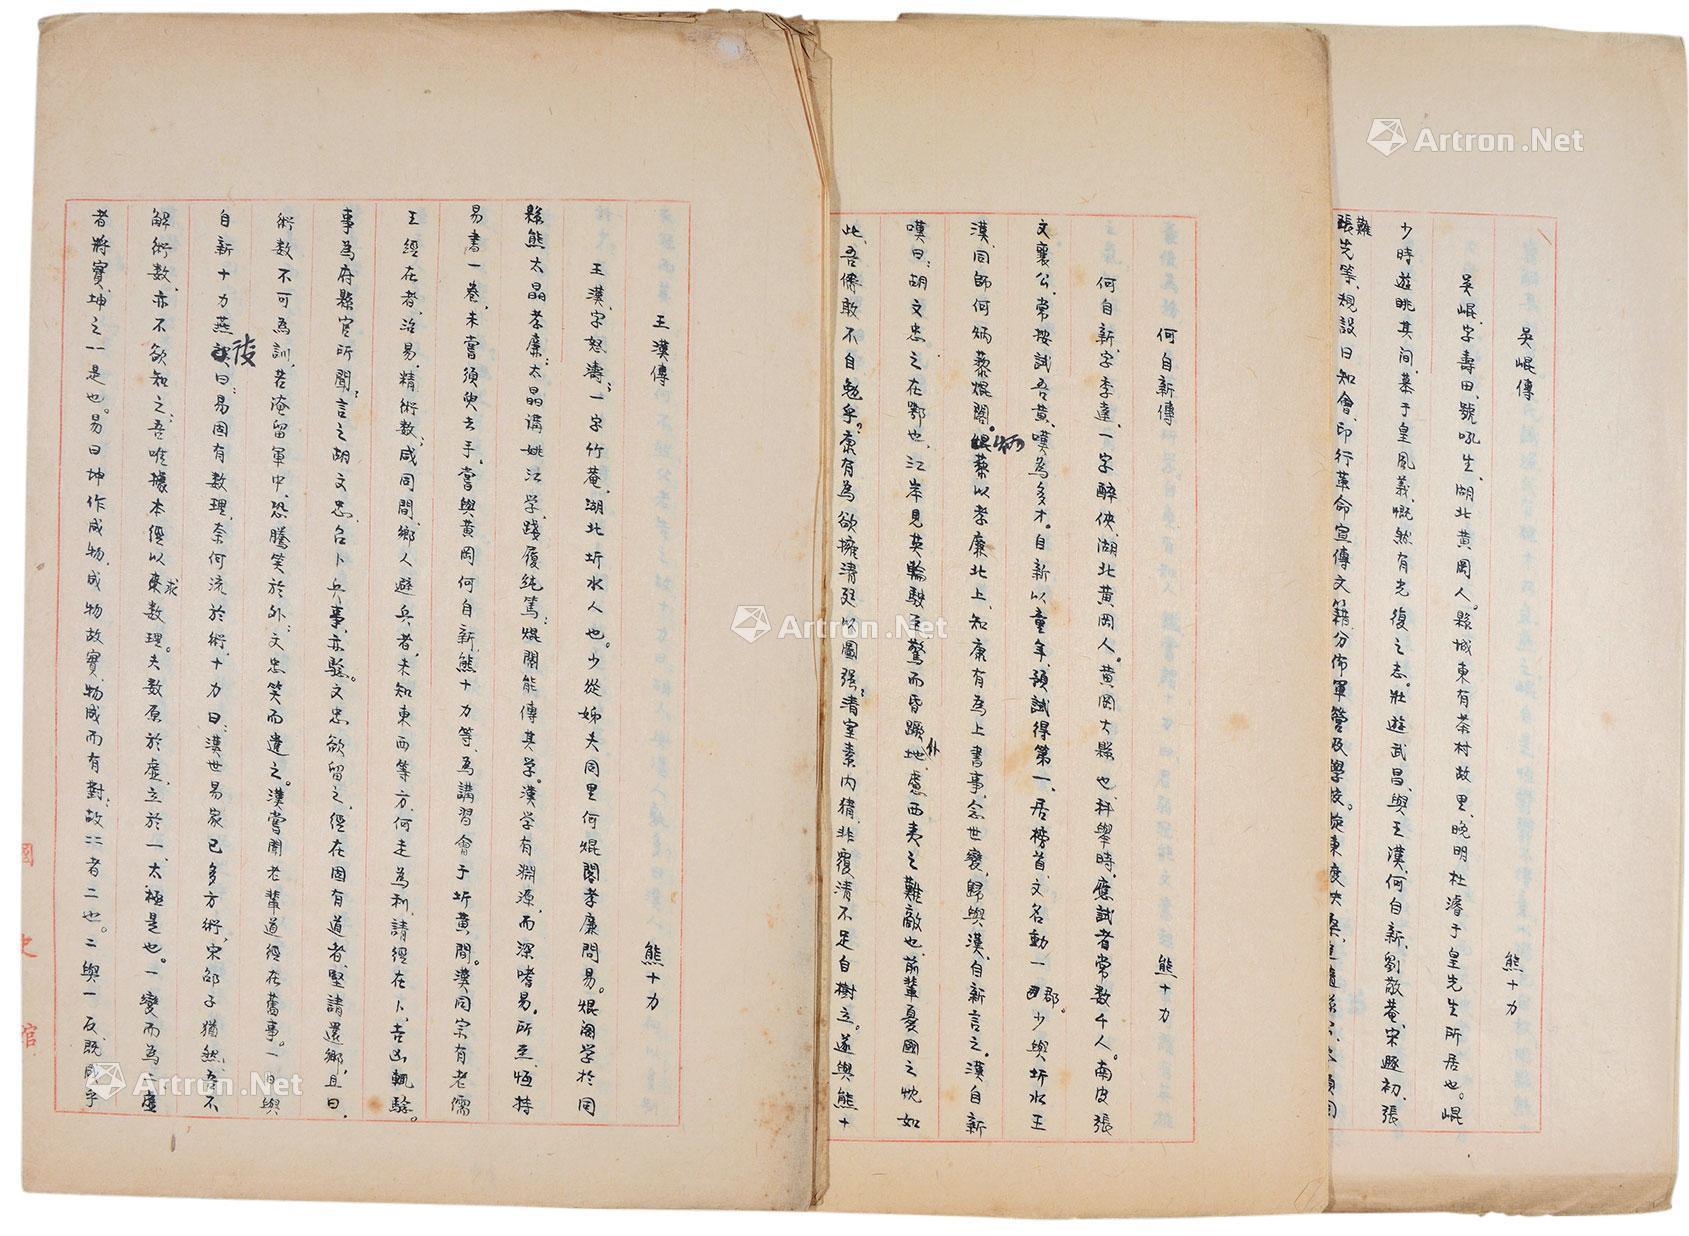 吳崐傳
熊十力
吳崐,字壽田,號吼生,湖北黃岡人。縣城東有茶村故里,晚明杜濬于皇先生所居也。崐
少時遊眺其间,慕于皇風義,慨然有光復之志。壯遊武昌,與王漢、何自新、劉敬菴、宋教初、張
難
張先等,規設日知會,印行革命宣傳文籍,分佈軍營及學校。
何自新傳
熊十力
何自新,字季達,一字醉俠,湖北黃岡人。黃岡大縣也,科舉時,應試者常数千人。南皮張
文襄公,常按試吾黃,嘆為多才。自新以童年,預試得第一,居榜首,文名動一郡。少與圻水王
漢,同師何焜閣。炳藜以孝廉北上,知康有為上書事,念世變,歸與漢、自新言之。漢自新
嘆曰:胡文忠之在鄂也,江岸見英輪駛至,驚而昏蹶仆地,慮西夷之難敵也,前輩憂國之忱如
此,吾儕敢不自勉乎?康有為欲擁清廷以圖强,清室素内猜,非覆清不足自樹立。遂與熊十
王漢傳
熊十力
王漢,字怒濤,一字竹菴,湖北圻水人也。少從姊夫同里何焜閣孝廉問易。焜閣学於同
縣熊太晶孝廉,太晶講姚江学,踐履純篤,焜閣能傳其学。漢学有淵源,而深嗜易。所至,恆持
易書一卷,未嘗須臾去手。嘗與黃岡何自新、熊十力等,為講習會于圻黃間。漢同宗有老儒
王經在者,治易,精術数,咸同間,鄉人避兵者,未知東西等方,何走為利,請經在卜,吉凶輒驗。
事為府縣官所聞,言之胡文忠,召卜兵事,亦驗。文忠欲留之,經在固有道者,堅請還鄉,且曰,
術数不可為訓,若淹留軍中,恐騰笑於外,文忠笑而遣之。漢嘗聞老輩道經在舊事。一日與
自新十力燕後曰:易固有数理,奈何流於術,十力曰:漢世易家已多方術,宋邵子猶然,吾不
解術数,亦不欲知之,吾唯據本經以求数理。夫数原於虛,立於一,太極是也。一變而為二,虛
者將實,坤之一是也。易曰坤作成物,成物故實,物成而有對,故二者二也。二與一反,既成乎
國史館
Artron.Net
Artron.Net
Artron.Net